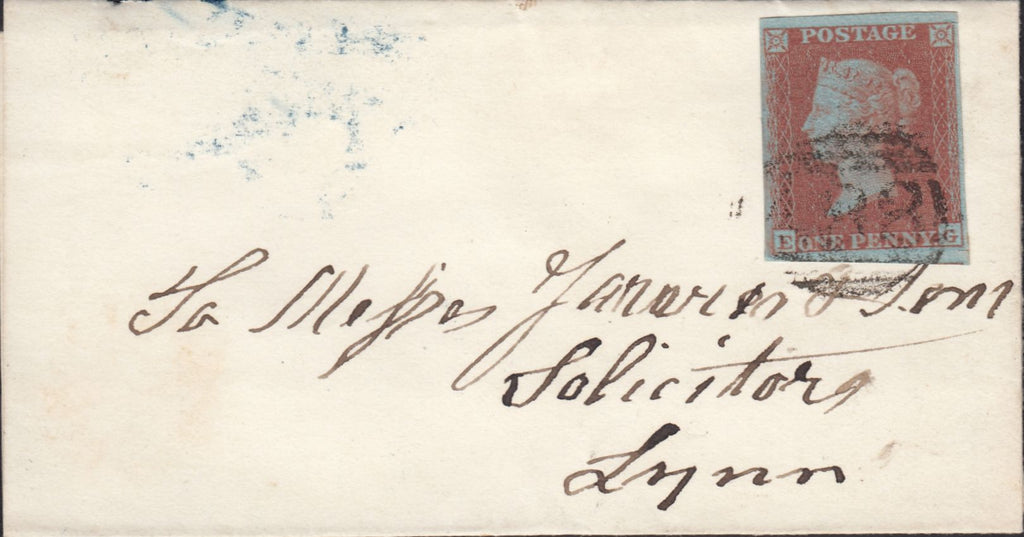 POSTAGE
E ONE PENNY G
To Messes Jarvis & Son
Solicitors
Lynn